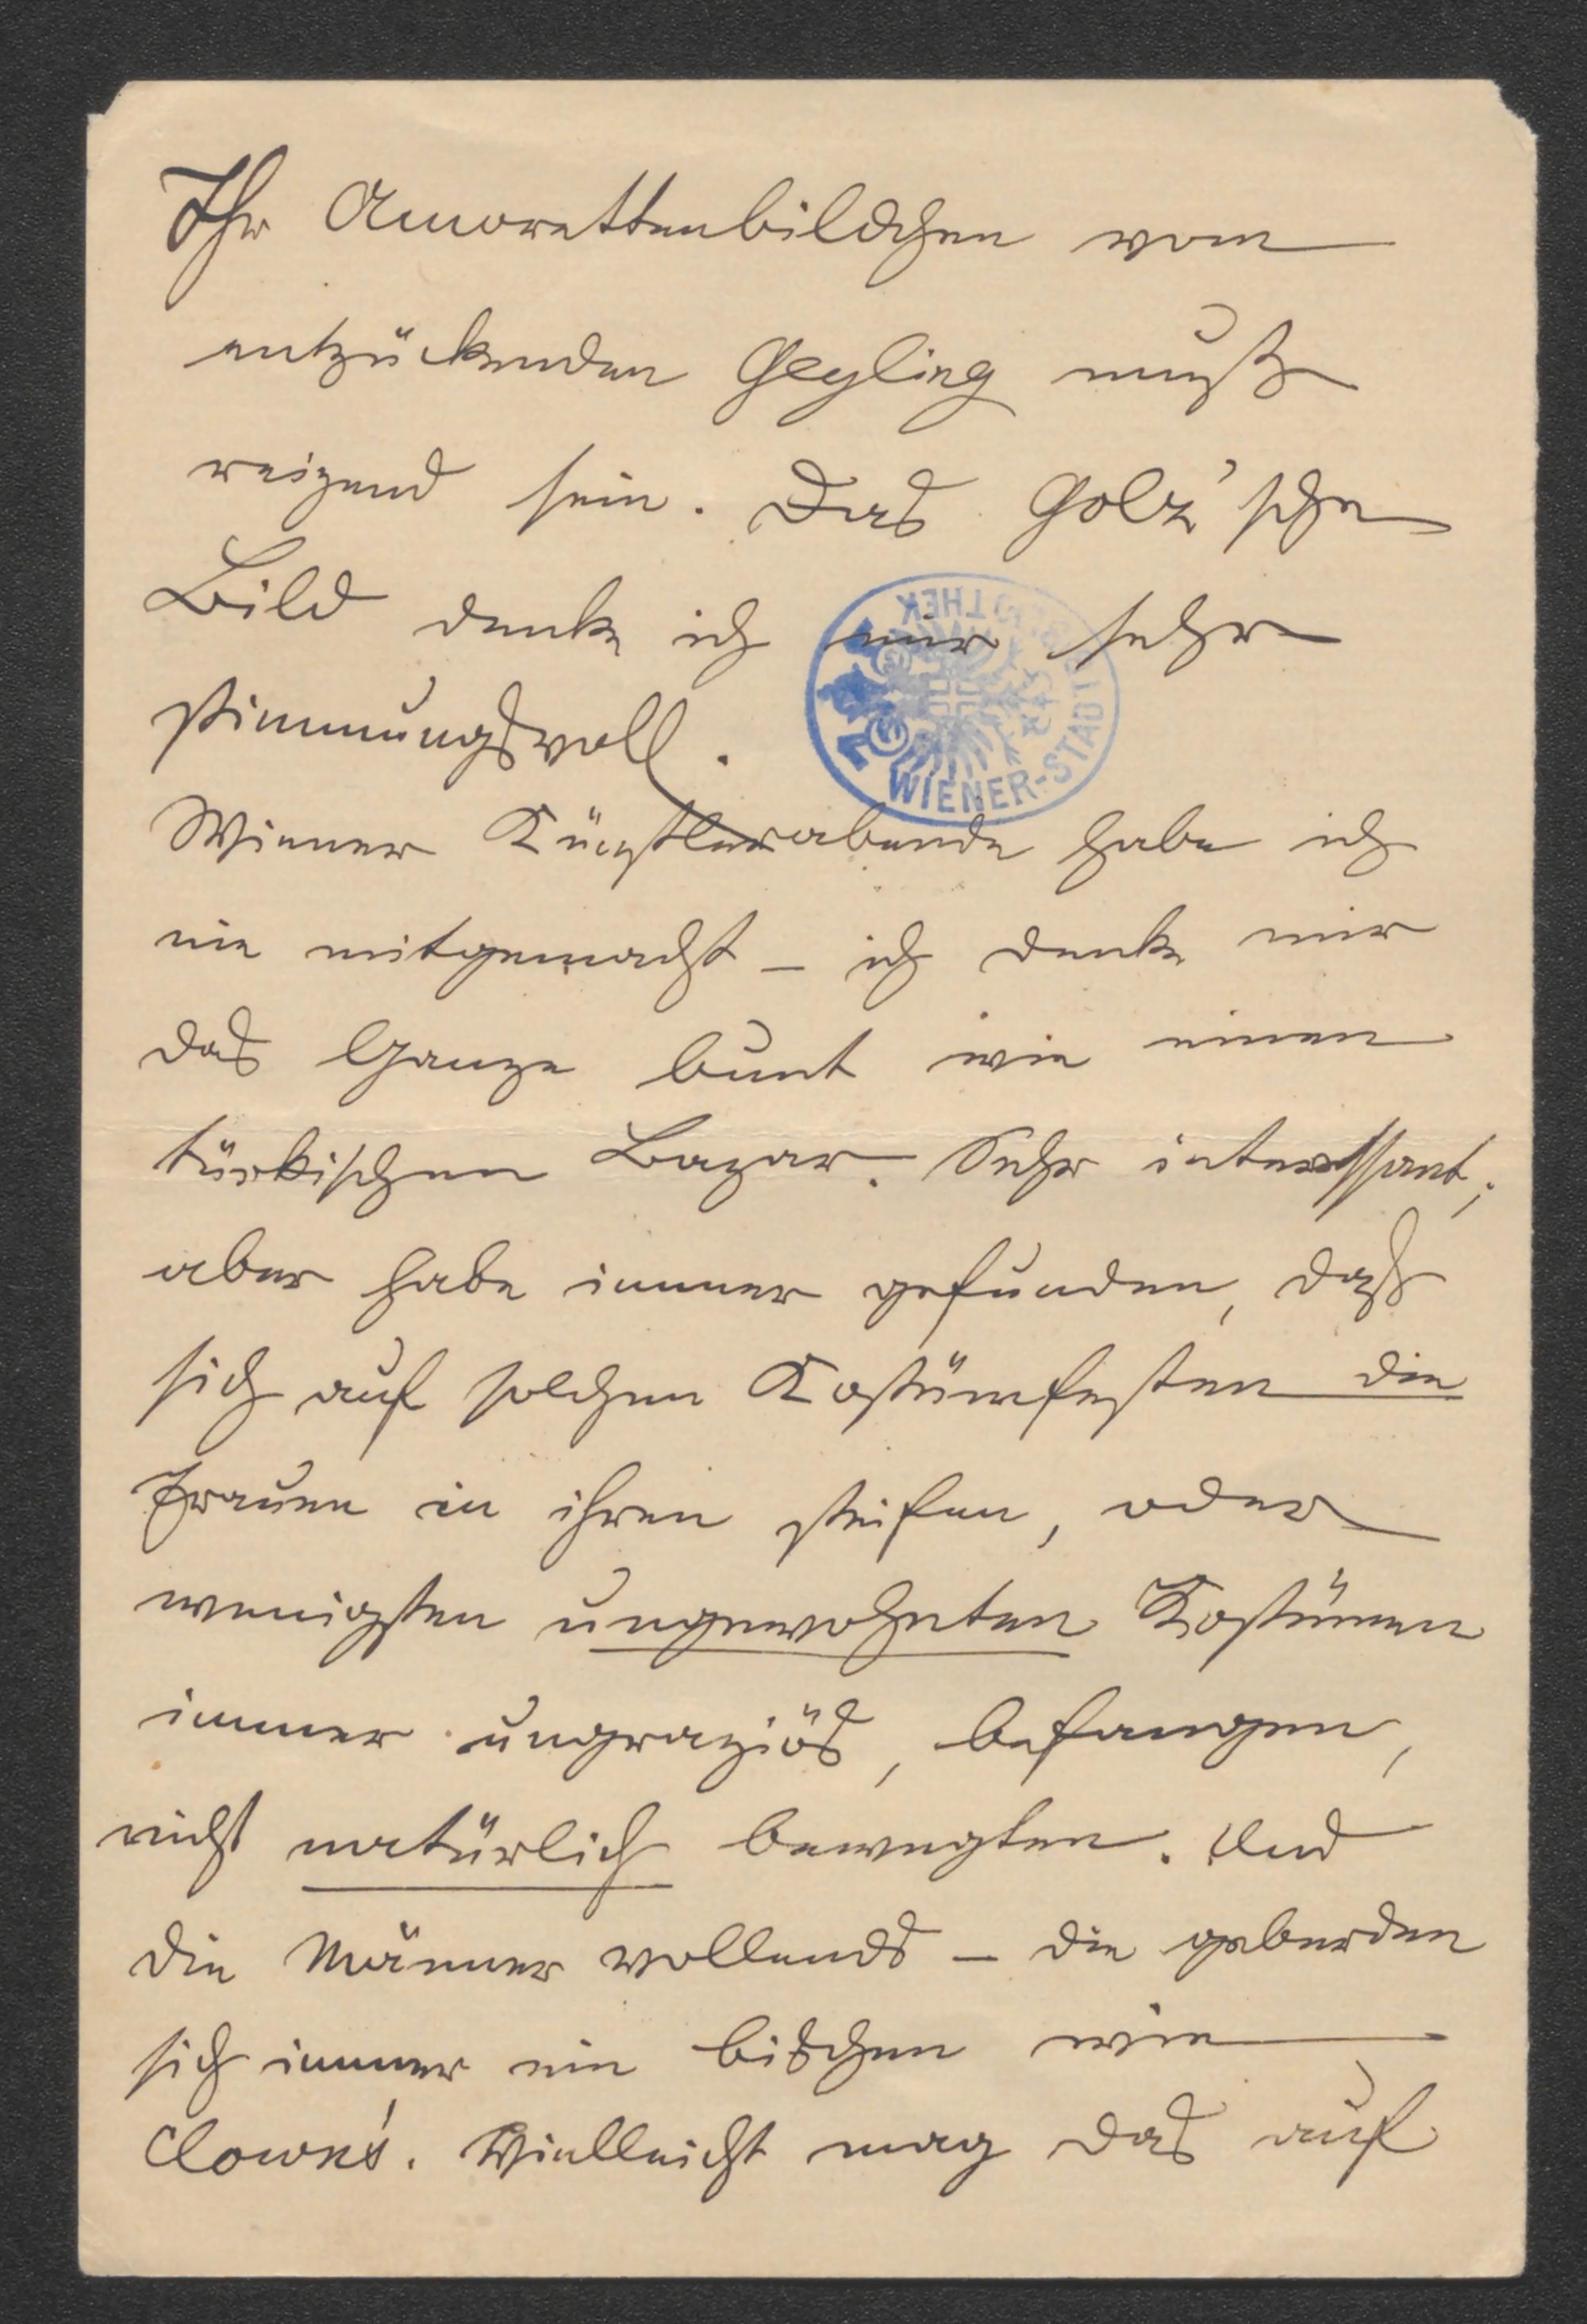 Ihr Amorettenbildchen vom
entzückenden Geyling muß
reizend sein. Das Golz'sche
Bild denke ich mir sehr
stimmungsvoll.
WIENER-STADTBIBLIOTHEK
Wiener Künstlerabende habe ich
nie mitgemacht – ich denke mir
das Ganze bunt wie einen
türkischen Bazar. Sehr interessant;
aber habe immer gefunden, daß
sich auf solchen Kostümfesten die
Frauen in ihren steifen, oder
wenigsten ungewohnten Kostümen
immer ungraziös, befangen,
nicht natürlich bewegten. Und
die Männer vollends – die geberden
sich immer ein bischen wie
Clown's. Vielleicht mag das auf